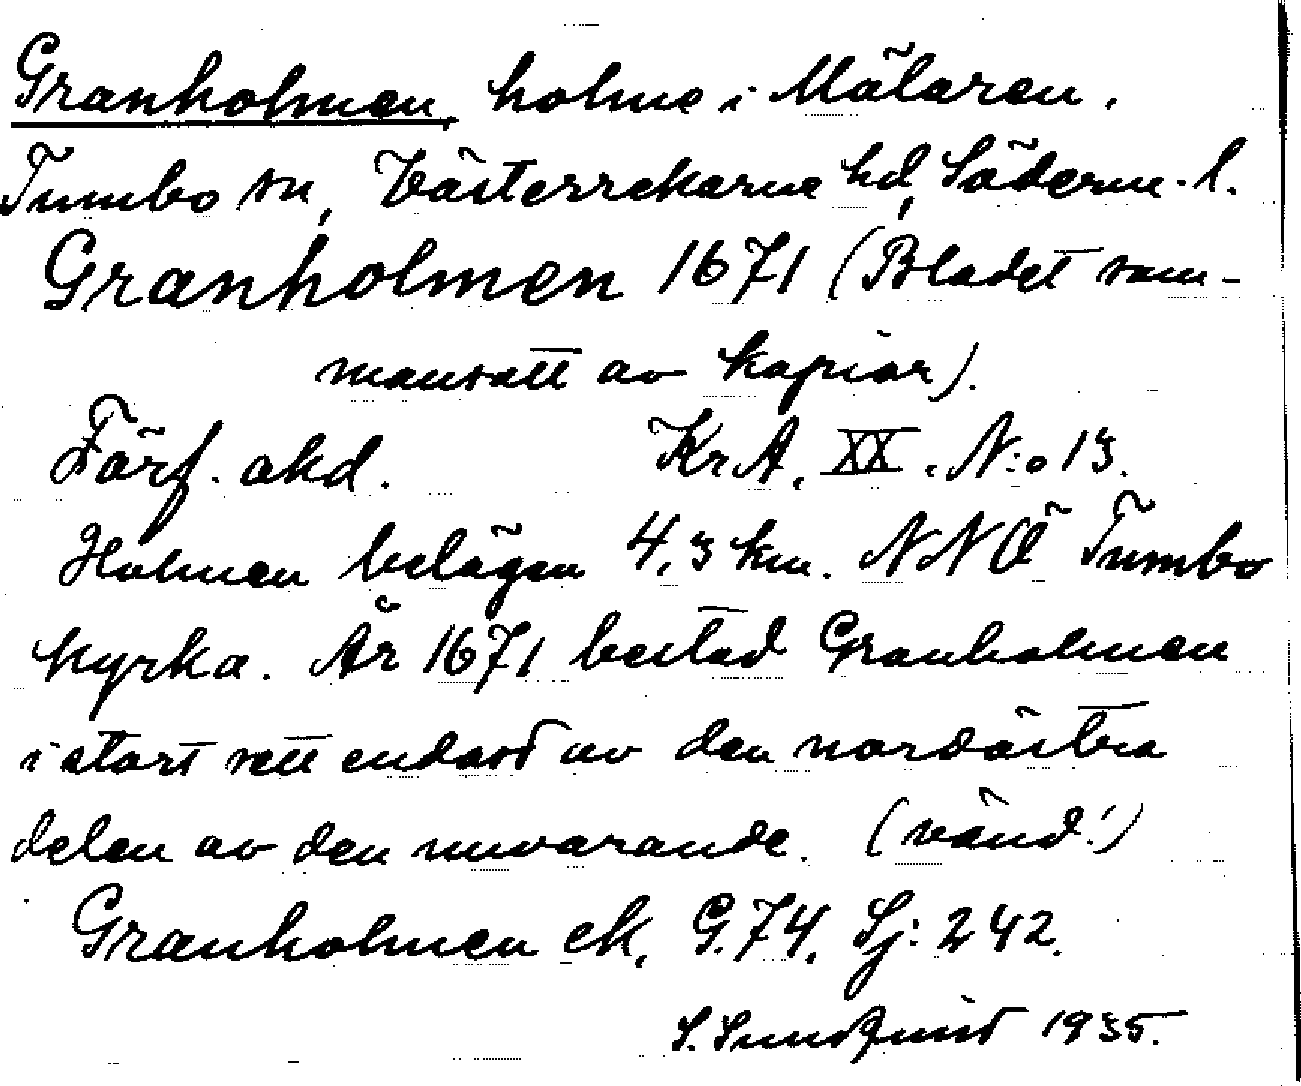 Granholmen, holme i Mälaren.
Tumbo sn, Västerrekarne hd, Söderm. l.
Granholmen 1671 (Bladet sam-
mansatt av kopior).
Förf. okd. KrA, XX. N:o 13.
Holmen belägen 4,3 km. NNÖ Tumbo
kyrka. År 1671 bestod Granholmen
i stort sett endast av den nordöstra
delen av den nuvarande. (vänd!)
Granholmen ek, G.74, Sj: 242.
S. 1935.